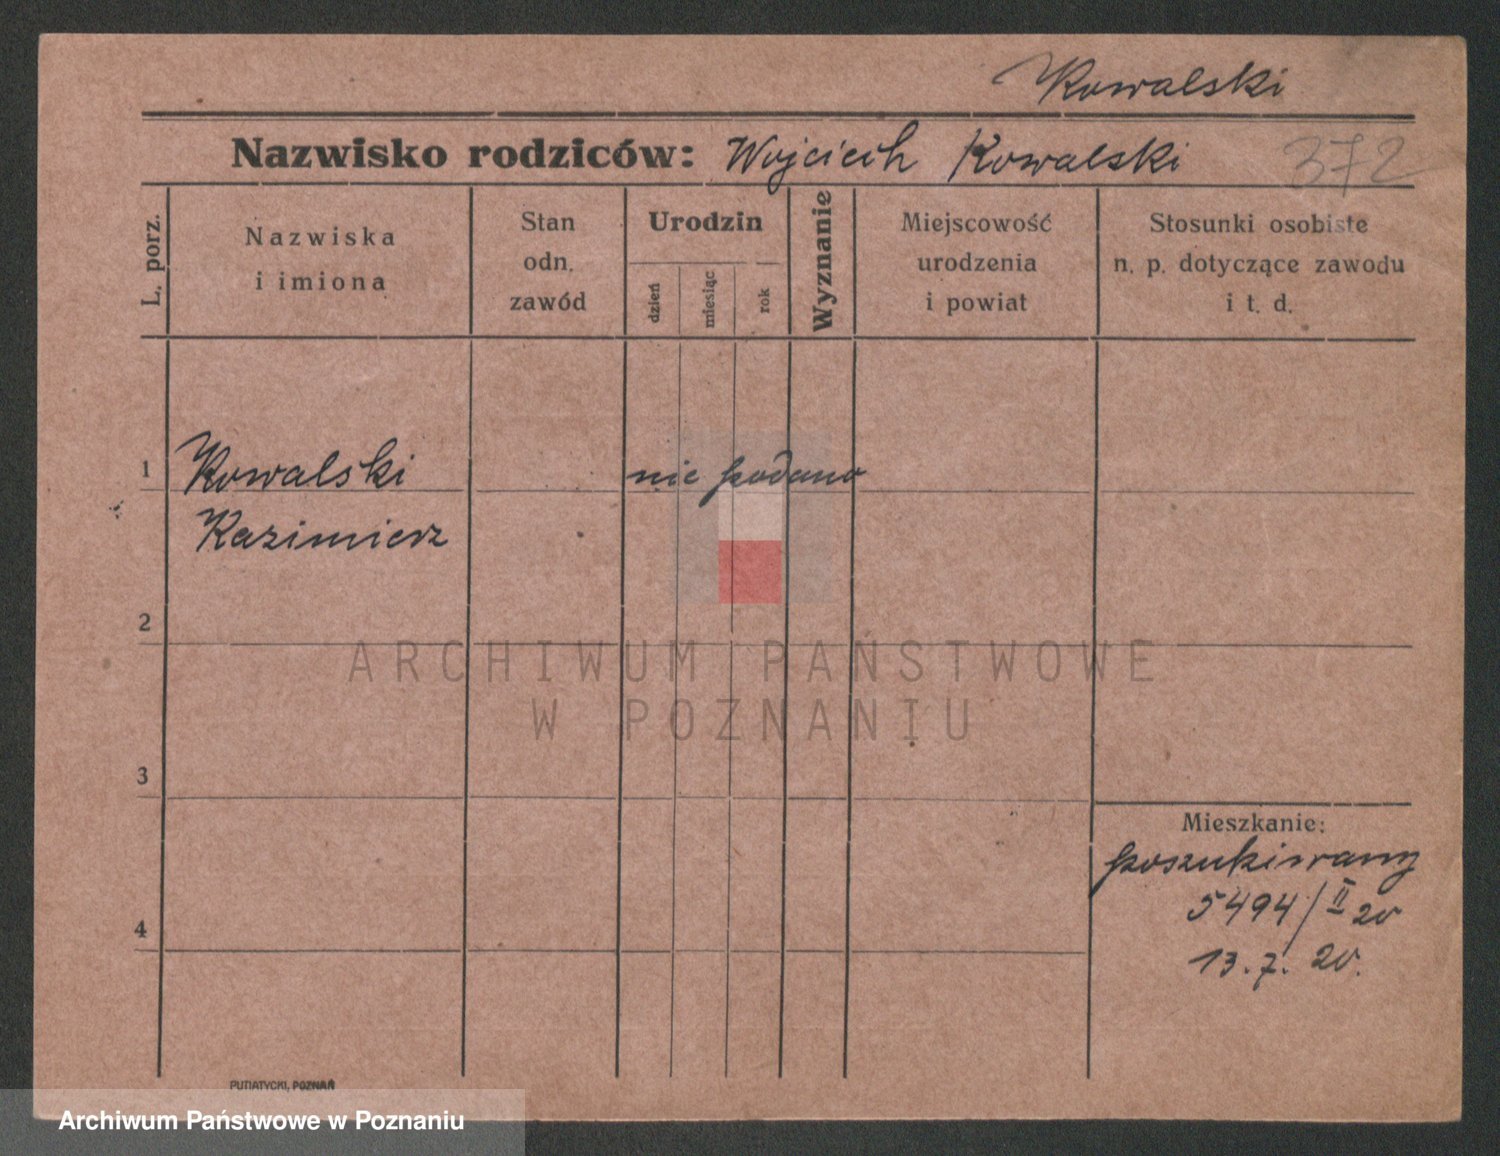 Kowalski
Nazwisko rodziców: Wojciech Kowalski 372
L. porz.
Nazwiska
i imiona
Stan
odn.
zawód
Urodzin
dzień
miesiąc
rok
Wyznanie
Miejscowość
urodzenia
i powiat
Stosunki osobiste
n. p. dotyczące zawodu
i t. d.
1 Kowalski nie podano
Kazimierz
2
ARCHIWUM PAŃSTWOWE
W POZNANIU
3
Mieszkanie:
poszukiwany
5494/II 20
4
13.7.20.
PUTIATYCKI, POZNAŃ
Archiwum Państwowe w Poznaniu